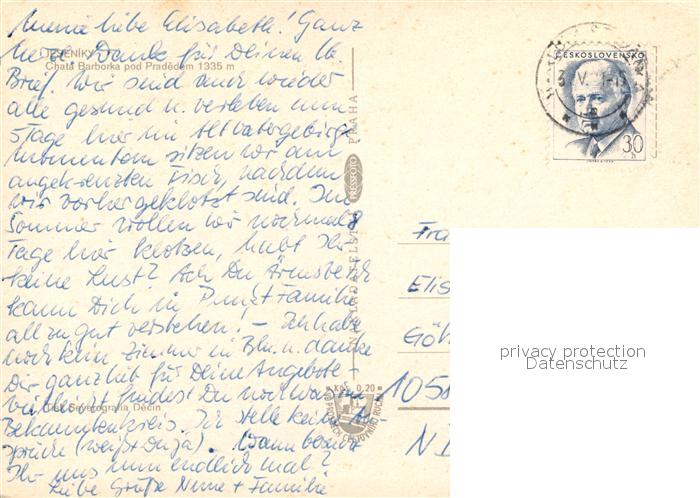 Meine liebe Elisabeth! Ganz
herzl. Dank für Deinen lb.
JESENÍKY
Chata Barborka pod Pradědem 1335 m
Brief. Wir sind auch wieder
alle gesund u. verleben nun
5 Tage hier im Altvatergebirge
momentan sitzen wir am
angekreuzten Tisch, nachdem
wir vorher geklotzt sind. Im
Sommer wollen wir nochmals 8
Tage hier klotzen, habt Ihr
keine Lust? Ach Du Ärmste ich
kann Dich in Punkt Familie
all zu gut verstehen! – Ich habe
noch kein Zimmer in Bln. u. danke
Dir ganz lieb für Deine Angebote –
vielleicht findest Du noch was im
Tisk Severografia Děčín
Bekanntenkreis. Ich stelle keine An-
sprüche (weißt Du ja). Wann besucht
Ihr uns nun endlich mal?
Liebe Grüße + Familie
PRAHA
PRESSFOTO
Kčs 0,20
ČESKOSLOVENSKO
30
h
Elis
105
privacy protection
Datenschutz